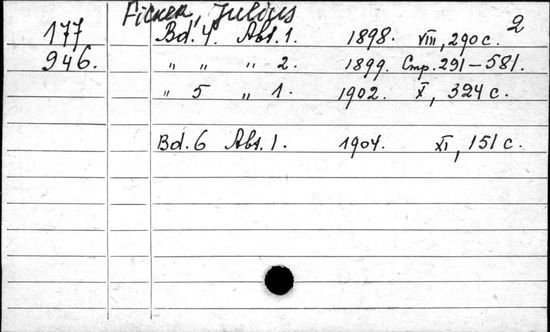 Ficker, Julius
2
177 Bd. 4. Abt. 1. 1898. VIII, 290 с.
946. " " " 2. 1899. Стр. 291–581.
" 5 " 1. 1902. X, 324 с.
Bd. 6 Abt. 1. 1904. XI, 151 с.